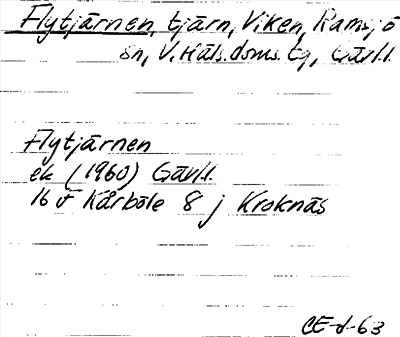 Flytjärnen, tjärn, Viken, Ramsjö
sn, V. Häls. doms. tg, Gävl.l.
Flytjärnen
ek (1960) Gävl.l.
16 F Kårböle 8 j Kroknäs
CE-d-63